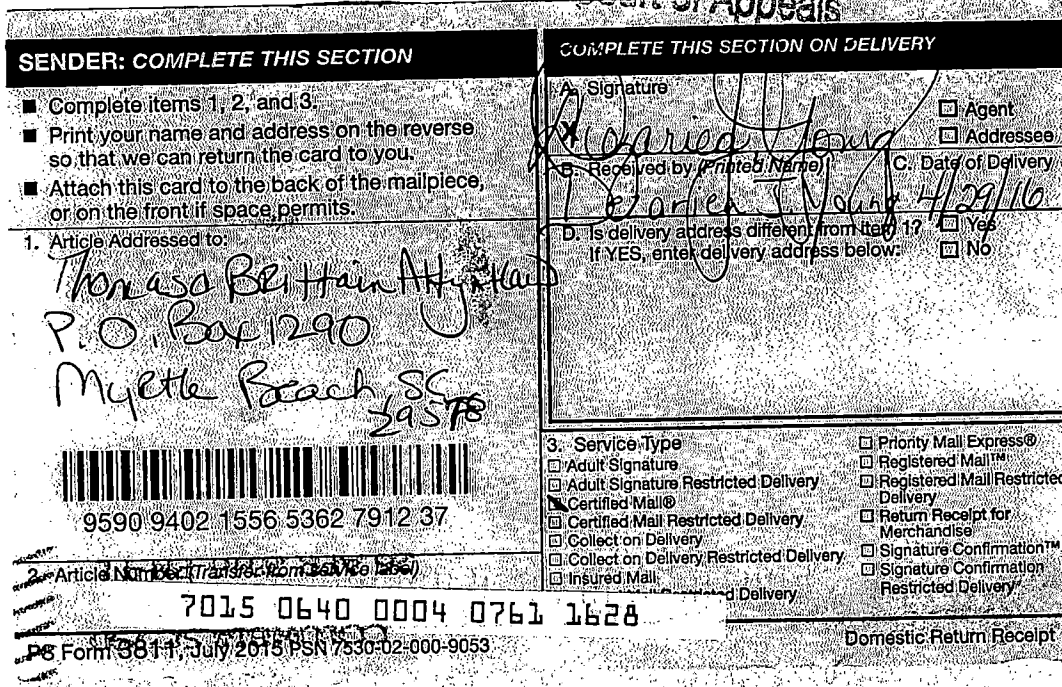 Court of Appeals
SENDER: COMPLETE THIS SECTION
■ Complete items 1, 2, and 3.
■ Print your name and address on the reverse
so that we can return the card to you.
■ Attach this card to the back of the mailpiece,
or on the front if space permits.
1. Article Addressed to:
Thomas Brittain Atty
P.O. Box 1290
Myrtle Beach SC
29578
9590 9402 1556 5362 7912 37
2. Article Number (Transfer from service label)
7015 0640 0004 0761 1628
PS Form 3811, July 2015 PSN 7530-02-000-9053
COMPLETE THIS SECTION ON DELIVERY
A. Signature
X Young
□ Agent
□ Addressee
B. Received by (Printed Name)
J. Young
C. Date of Delivery
4/29/16
D. Is delivery address different from item 1? □ Yes
If YES, enter delivery address below: □ No
3. Service Type
□ Adult Signature
□ Adult Signature Restricted Delivery
Certified Mail®
□ Certified Mail Restricted Delivery
□ Collect on Delivery
□ Collect on Delivery Restricted Delivery
□ Insured Mail
Restricted Delivery
□ Priority Mail Express®
□ Registered Mail™
□ Registered Mail Restricted
Delivery
□ Return Receipt for
Merchandise
□ Signature Confirmation™
□ Signature Confirmation
Restricted Delivery
Domestic Return Receipt